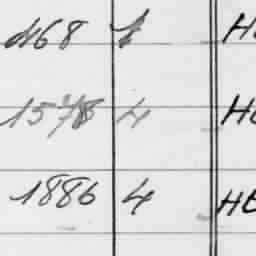 468 1 H
1578 4 H
1886 4 HE